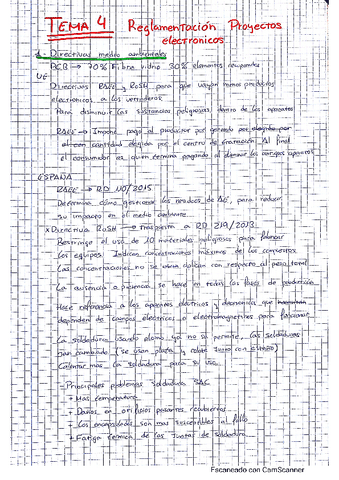 TEMA 4 Reglamentación Proyectos
electronicos
1- Directivas medio ambientales
PCB → 70% Fibra vidrio 30% elementos
UE
Directivas RAEE y RoSH para que vayan menos productos
electronicos a los vertederos
Para disminuir las sustancias peligrosas dentro de los aparatos
RAEE → Impone pago al productor por
cantidad elegida por el centro de Al final
el consumidor es quien termina pagando al los aparatos
ESPAÑA
RAEE → RD 110/2015
Determina cómo gestionar los residuos de para reducir
su impacto en el medio ambiente
Directiva RoSH → traspuesta a RD 219/2013
Restringe el uso de 10 materiales peligrosos para fabricar
los equipos. Indican concentraciones máximas de los compuestos
Las concentraciones no se aplican con respecto al peso total
La ausencia o presencia, se hace en todas las fases de producción
Hace referencia a los aparatos electricos y electronicos que
dependen de campos electricos o electromagneticos para funcionar
La soldadura usando plomo ya no se permite, las soldaduras
han cambiado (se usan plata y cobre junto con estaño)
Calentar mas la soldadura para su uso
- Principales problemas soldadura SAC
+ Mas temperatura
+ Daños en orificios pasantes recubiertos
+ Los encapsulados son mas susceptibles al fallo
+ Fatiga termica de las juntas de soldadura
Escaneado con CamScanner